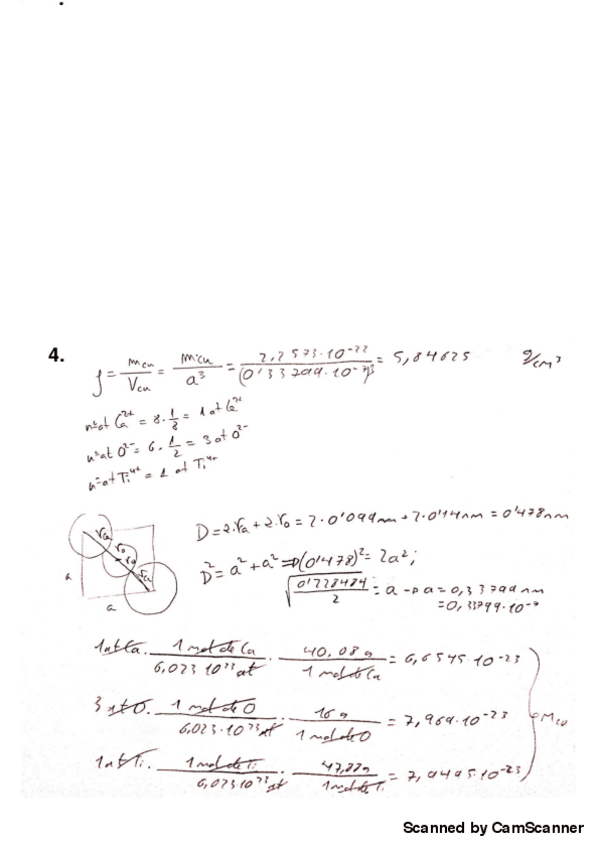 4.
ρ = m_cu / V_cu = m_cu / a³ = 2,2573·10⁻²² / (0'33799·10⁻⁷)³ = 5,84625 g/cm³
nºat Ca²⁺ = 8·1/8 = 1 at Ca²⁺
nºat O²⁻ = 6·1/2 = 3 at O²⁻
nºat Ti⁴⁺ = 1 at Ti⁴⁺
D = 2·ra + 2·ro = 2·0'099nm + 2·0'14nm = 0'478nm
D² = a² + a² => (0'478)² = 2a²;
√(0'228484 / 2) = a -> a = 0,33799 nm
= 0,33799·10⁻⁷
rCa
ro
ro
rCa
a
a
1at Ca · 1 mol de Ca / 6,023·10²³ at · 40,08 g / 1 mol de Ca = 6,6545·10⁻²³
3 at O · 1 mol de O / 6,023·10²³ at · 16 g / 1 mol de O = 7,969·10⁻²³
m_cu
1at Ti · 1 mol de Ti / 6,023·10²³ at · / 1 mol de Ti =
Scanned by CamScanner